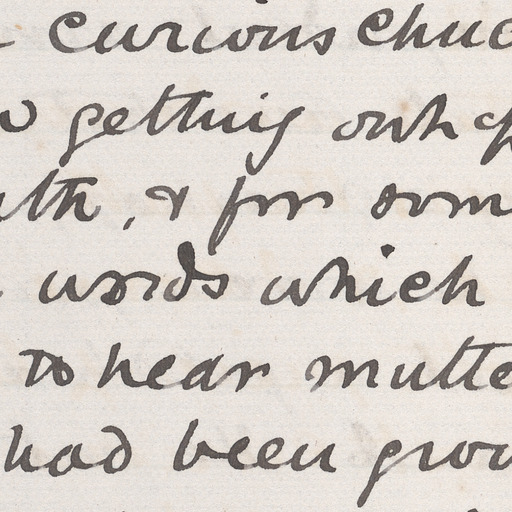 curious chuc
getting out of
th, & for som
words which
to hear mutte
had been grow